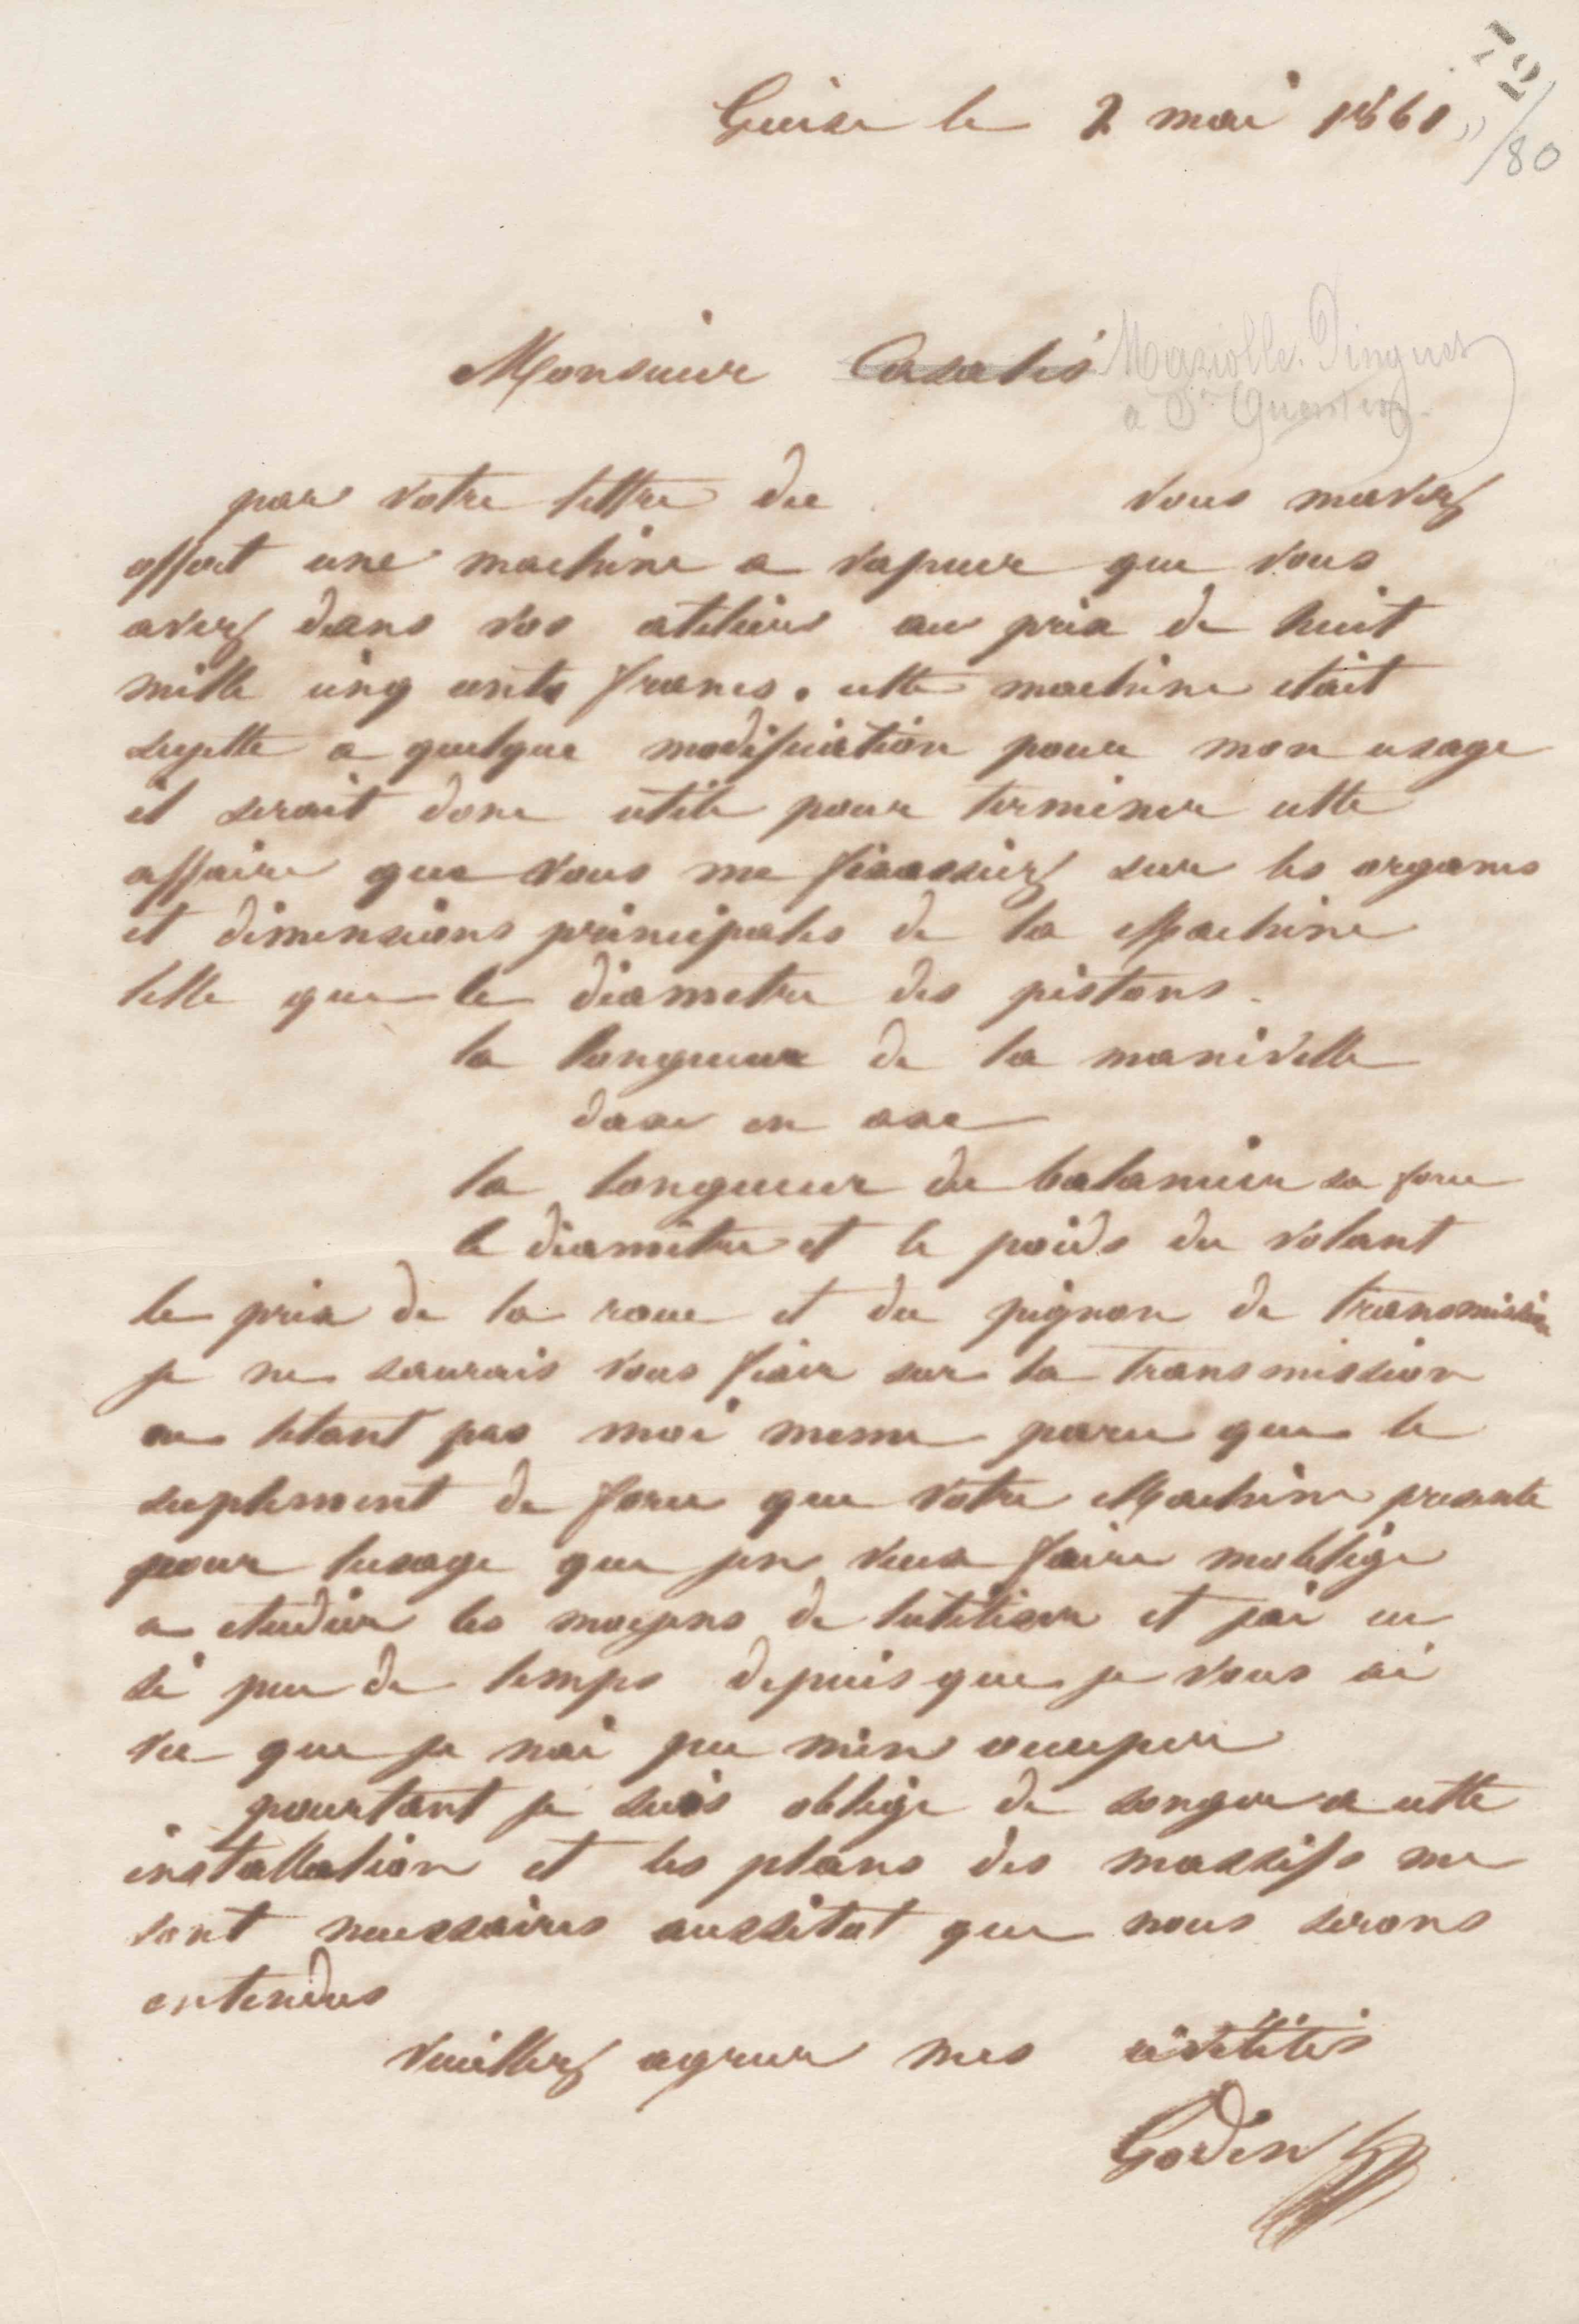 72/80
Guise le 2 mai 1861
Monsieur Casalis Mariolle-Pinguet
a St Quentin
par votre lettre du vous mavez
offert une machine a vapeur que vous
avez dans vos ateliers au prix de huit
mille cinq cents francs. cette machine etait
sujette a quelque modification pour mon usage
il serait donc utile pour terminer cette
affaire que vous me fixassiez sur les organes
et dimensions principales de la Machine
telle que le diametre des pistons.
la longueur de la manivelle
daxe en axe
la longueur du balancier sa force
le diamètre et le poids du volant
le prix de la roue et du pignon de transmission
je ne saurais vous fixer sur la transmission
ne létant pas moi meme parce que le
suplement de force que votre Machine presente
pour lusage que jen veux faire moblige
a etudier les moyens de lutiliser et jai eu
si peu de temps depuis que je vous ai
vu que je nai pu men occuper
pourtant je suis obligé de songer a cette
installation et les plans des massifs me
sont necessaires aussitot que nous serons
entendus
Veuillez agreer mes civilités
Godin